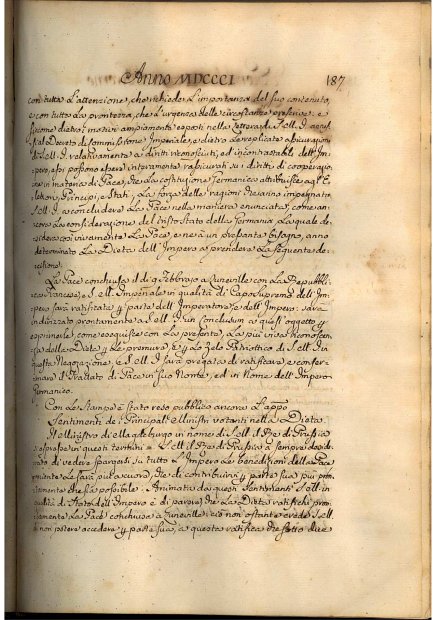 Anno MDCCCI
187
con tutta l'attenzione, che richiede l'importanza del suo contenuto,
e con tutta la prontezza, che l'urgenza delle circostanze prescrive: e
siccome dietro i motivi ampiamente esposti nella lettera di S. M. annessa
al Decreto di Commissione Imperiale, e dietro le replicate assicurazioni
di S. M. relativamente a diritti riconosciuti, ed incontrastabili dell'Im-
pero, essi possono essere interamente rassicurati su i diritti di cooperazio
ne in materia di Pace, che la costituzione Germanica attribuisce agl'E-
lettori, Principi, e Stati; la forza delle ragioni che hanno impegnato
S. M. a conchiudere la Pace nella maniera enunciata, come an-
cora la considerazione del tristo stato della Germania, la quale de-
sidera così vivamente la Pace, e ne à un pressante bisogno, anno
determinato la Dieta dell'Impero a prendere la seguente de-
cisione.
La Pace conchiusa il dì 9 Febbrajo a Luneville con la Repubbli-
ca Francese, e S. M. Imperiale in qualità di Capo Supremo dell'Im-
pero sarà ratificata per parte dell'Imperatore, e dell'Impero: sarà
indirizzato prontamente a S. M. un Conclusum a quest'oggetto per
esprimerle come eseguisce con la presente, la più viva riconoscen-
za della Dieta per le premure, e per lo zelo Patriottico di S. M. in
questa Negoziazione, e S. M. sarà pregata di ratificare, e confer-
mare il Trattato di Pace in suo Nome, ed in Nome dell'Impero
Germanico.
Con le Stampe è stato reso pubblico ancora l'appo
Sentimenti de' Principali Ministri votanti nella Dieta.
Il Ministro di Magdeburgo in nome di S. M. il Re di Prussia
si espresse in questi termini = S. M. il Re di Prussia à sempre deside-
rato di vedere spargersi su tutto l'Impero le benedizioni della Pace
premente le sarà pura cura, che di contribuirvi per parte sua più pron-
tamente che sia possibile: Animata da questi sentimenti S. M. in
qualità di Stato dell'Impero è di parere, che la Dieta ratifichi pron-
tamente la Pace conchiusa a Luneville: ciò non ostante crede S. M.
di non potere accedere per parte sua, a questa ratifica che sotto due